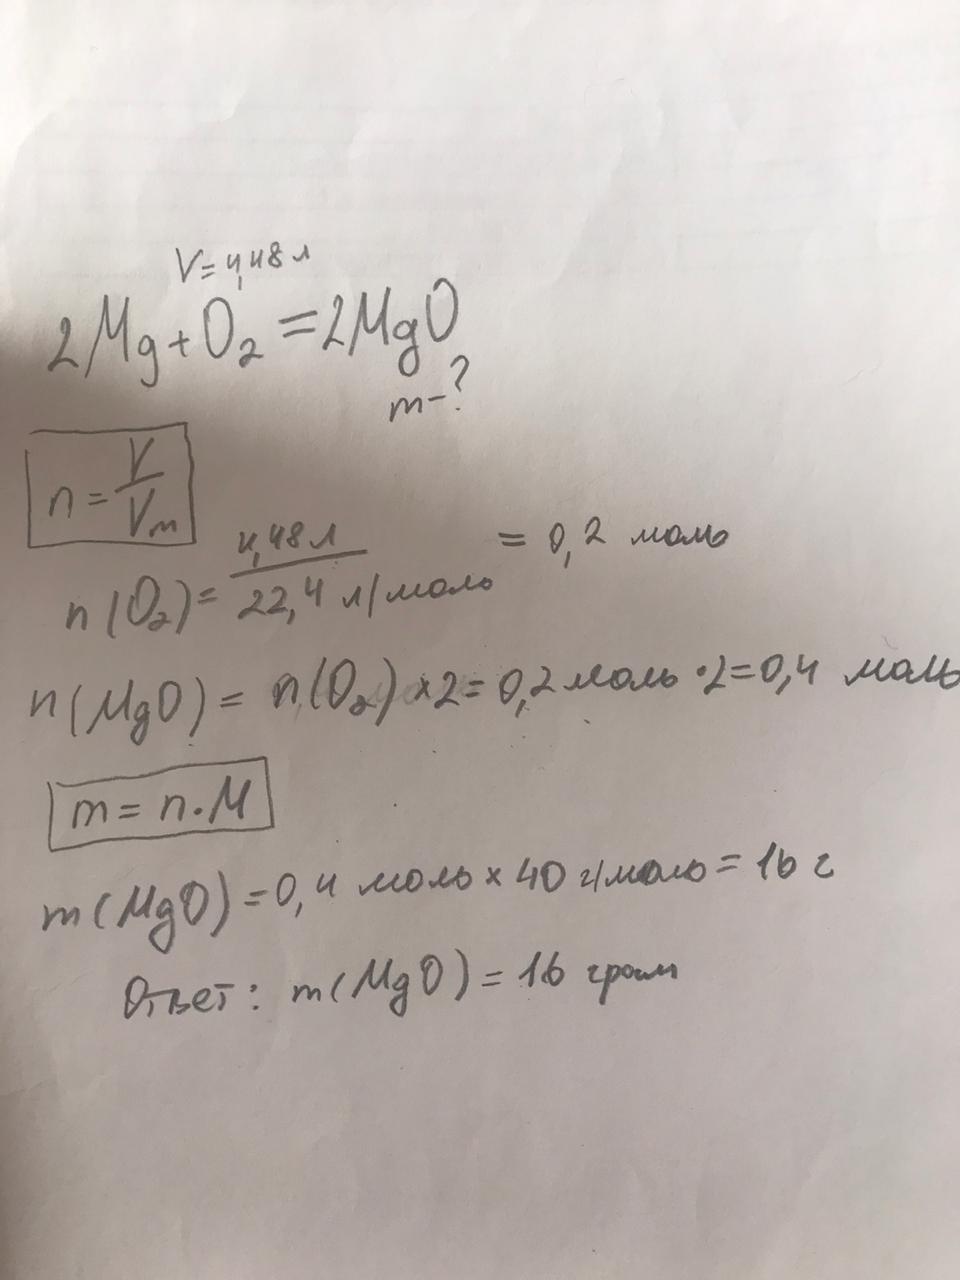 V=4,48 л
2Mg+O₂=2MgO
m-?
n=V/Vm
n(O₂)=4,48 л/22,4 л/моль = 0,2 моль
n(MgO)= n(O₂)×2=0,2 моль·2=0,4 моль
m=n·M
m(MgO)=0,4 моль×40 г/моль=16 г
Ответ: m(MgO)=16 грам